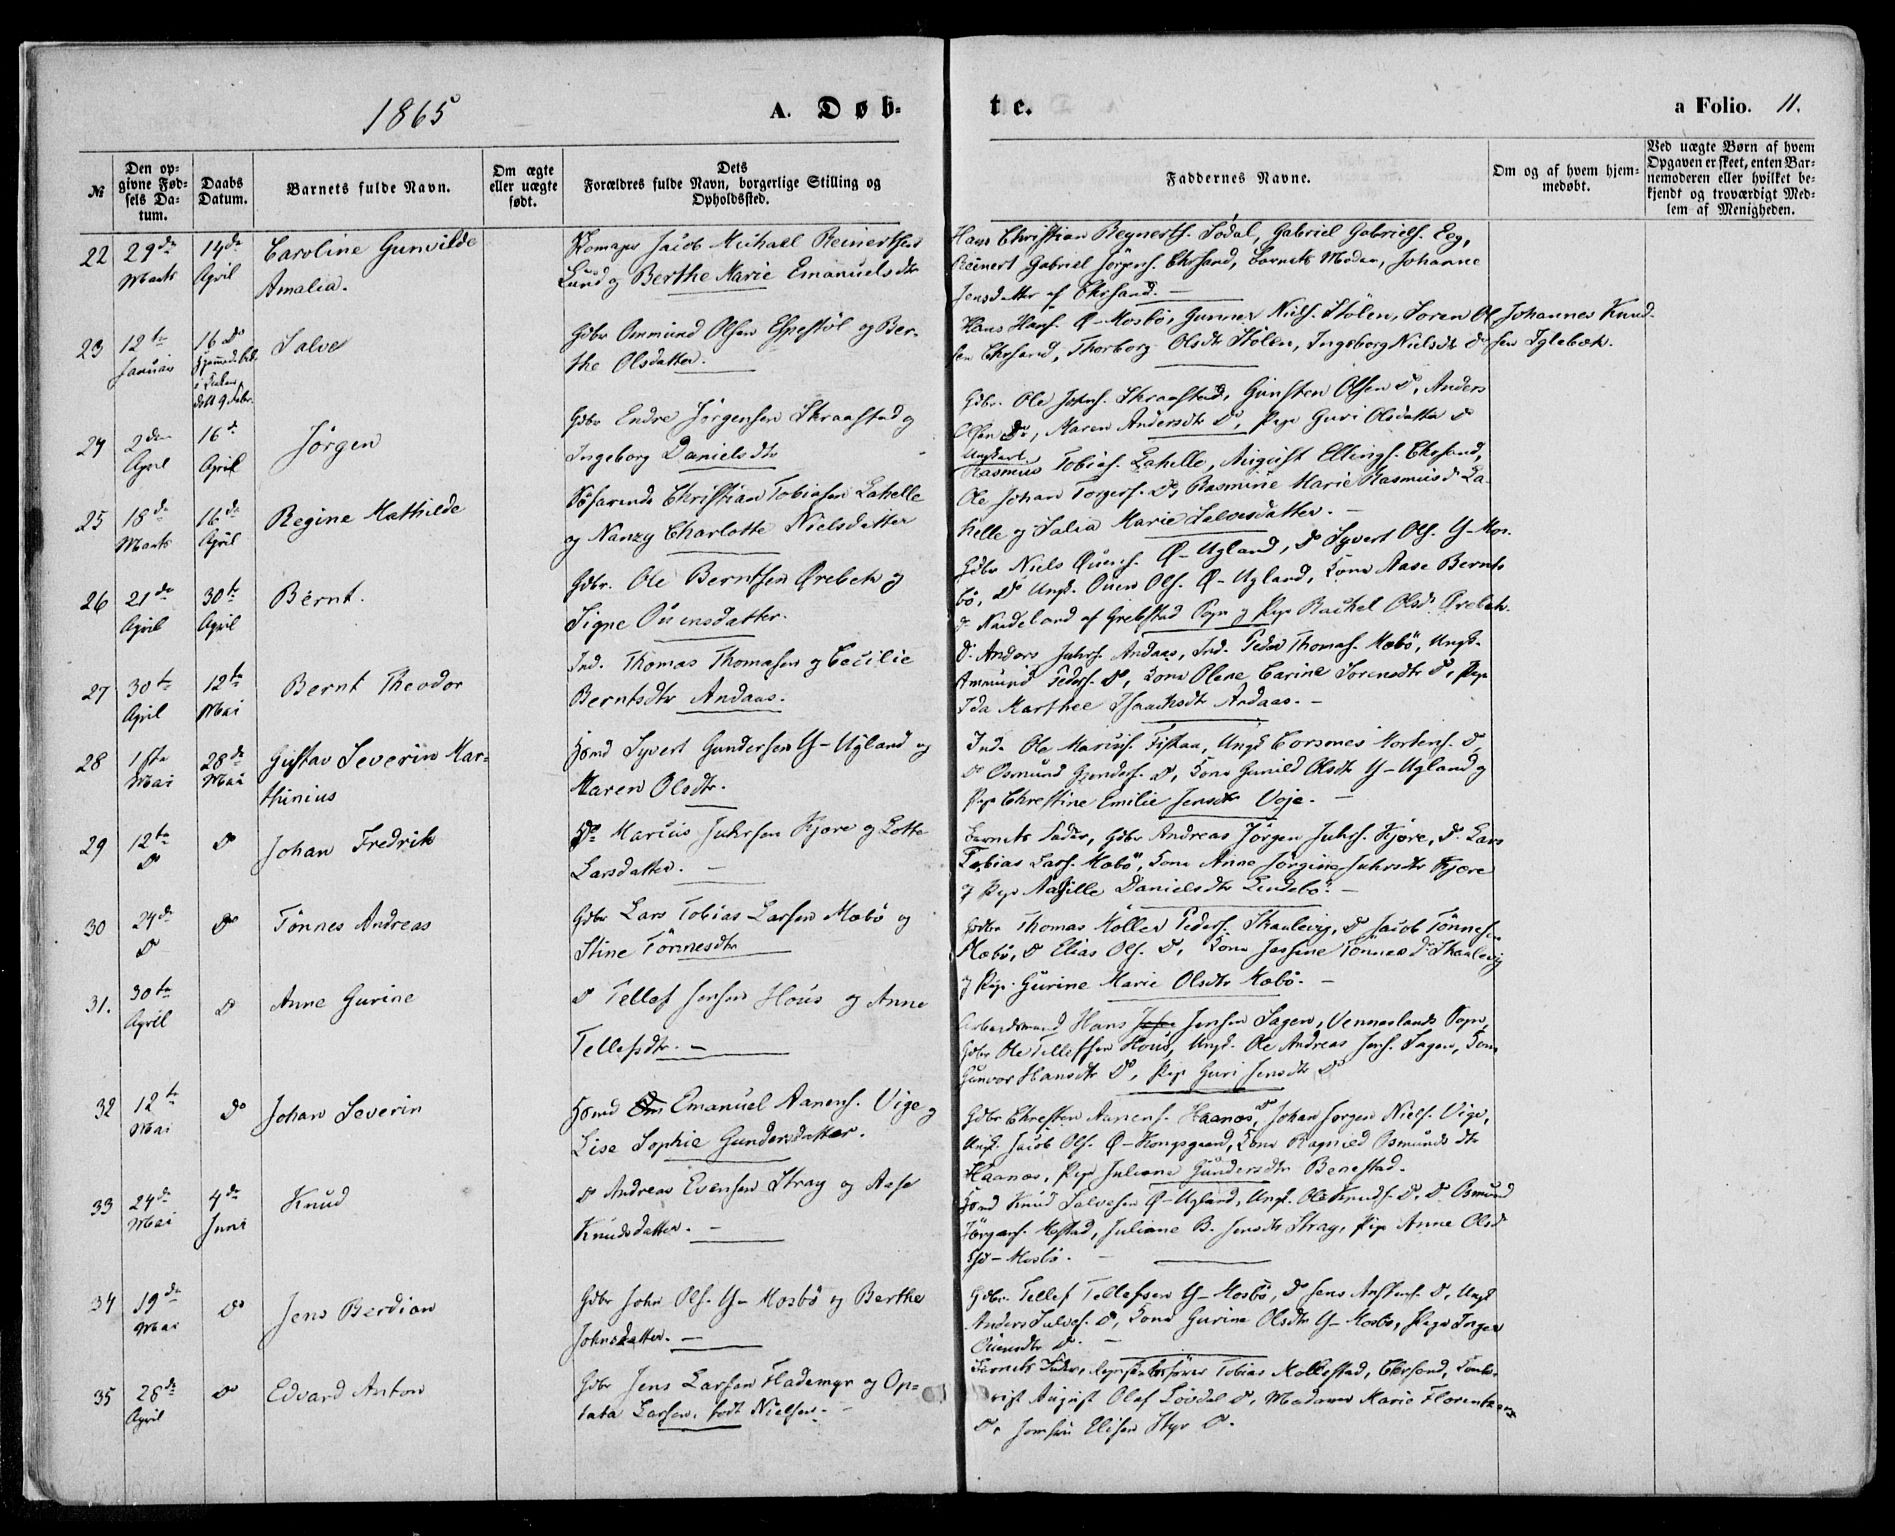 1865
A. Døb-
te.
a Folio. 11.
№
Den op-
givne Fød-
sels Da-
tum.
Daabs
Datum.
Barnets fulde Navn.
Om ægte
eller uægte
født.
Dets
Forældres fulde Navn, borgerlige Stilling og
Opholdssted.
Faddernes Navne.
Om og af hvem hjem-
medøbt.
Ved uægte Børn af hvem
Opgaven er skeet, enten Bar-
nemoderen eller hvilket be-
kjendt og troværdigt Med-
lem af Menigheden.
22 29de Marts 14de April Caroline Gunvilde
Amalia.
Skomager Jacob Michael Reinertsen
Lund og Berthe Marie Emanuelsdtr
Hans Christian Reynerts. Sødal, Gabriel Gabriels. Eeg,
Reinert Gabriel Jørgens. Chrsand, Barnets Moder, Johanne
Jensdatter af Chrsand.
23 12te Januar 16 Do Salve
Gdbr Ommund Olsen Espestøl og Ber-
the Olsdatter.
Hans Hans. Ø-Mosbø, Gunner Niels. Stølen, Søren Ol Johannes Knud-
sen Chrsand, Thorborg Olsdtr Stølen, Ingeborg Nielsdtr
24 2den April 16de April Jørgen
Gdbr Endre Jørgensen Skraastad og
Ingeborg Danielsdtr
Gdbr. Ole Skraastad, Gunsten Olsen Do, Anders
Olsen Do, Maren Andersdtr Do, Pige Guri Olsdatter Do
25 18de Marts 16de April Regine Mathilde
Søfarende Christian Tobiasen Lahelle
og Nanzy Charlotte Nielsdatter
Ungkarl
Rasmus Tobias. Lahelle, August Ellings. Chrsand,
Ole Johan Torgers. Do, Rasmine Marie Rasmusd. La-
helle og Salia Marie Salvesdatter.
26 21de April 30te April Bernt.
Gdbr. Ole Berntsen Ørebek og
Signe Ouensdatter.
Gdbr Niels Ouens. Ø-Ugland, Do Syvert Ols. Y-Mos-
bø, Do Ungk. Ouen Ols. Ø-Ugland, Kone Aase Bernts
d. af Grebstad Sogn og Pige Rachel Olsd. Ørebek.
27 30te April 12te Mai Bernt Theodor
Ind. Thomas Thomasen og Cecilie
Berntsdtr Andaas.
Do Anders Juhrs. Andaas, Ind. Peder Thomas. Mæbø, Ungk.
Ammund Peders. Do, Kone Olene Carine Sørensdtr Do, Pige
Ida Marthee Isaachsdtr Andaas.
28 1ste Mai 28de Mai Gustav Severin Mar-
thinius
Hsmd Syvert Gundersen Y-Ugland og
Maren Olsdtr.
Ind. Ole Marius. Fiskaa, Ungk Mortens. Do
Do Osmund Gunders. Do, Kone Gunild Olsdtr Y-Ugland og
Pige Chrestine Emilie Jensdtr Voje.
29 12te Do Do Johan Fredrik
Do Marcus Juhrsen Kjære og Lotte
Larsdatter.
Barnets Fader, Gdbr Andreas Jørgen Juhrs. Kjære, Do Lars
Tobias Lars. Mæbø, Kone Anne Jørgine Juhrsdtr Kjære
og Pige Danielsdtr Lindebø.
30 24de Do Do Tönnes Andreas
Gdbr Lars Tobias Larsen Mæbø og
Stine Tönnesdtr
Gdbr Thomas Møller Peders. Skaalevig, Do Jacob Tönnes.
Mæbø, Do Elias Ols. Do, Kone Josine Tönnesd. Skaalevig
og Pige Gurine Marie Olsdtr Mæbø.
31. 30te April Do Anne Gurine
Do Tellef Jensen Hous og Anne
Tellefsdtr.
Arbeidsmand Hans Jensen Sagen, Venneslands Sogn,
Gdbr Ole Tellefsen Hous, Ungk. Ole Andreas Jens. Sagen, Kone
Gunvor Hansdtr Do, Pige Guri Jensdtr Do
32 12te Mai Do Johan Severin
Hsmd Emanuel Aanens. Vige og
Lise Sophie Gundersdatter.
Gdbr Chresten Aanens. Haanæs, Do Johan Jørgen Niels. Vige,
Ungk. Jacob Ols. Ø-Kongsgaard, Kone Ragnild Osmundsdtr
Haanæs, Pige Juliane Gundersdtr Benestad.
33 24de Mai 4de Juni Knud
Do Andreas Evensen Stray og Aase
Knudsdatter.
Hsmd Knud Salvesen Ø-Ugland, Ungk. Ole Knuds. Do, Do Osmund
Jørgens. Mestad, Juliane B. Jensdtr Stray, Pige Anne Olsd
Mosbø.
34 19de Mai Do Jens Berdion
Gdbr John Ols. Y-Mosbø og Berthe
Johnsdatter.
Gdbr. Tellef Tellefsen Y-Mosbø, Do Jens Do, Ungk
Anders Salves. Do, Kone Gurine Olsdtr Y-Mosbø, Pige Inger
Ouensdtr Do.
35 28de April Do Edvard Anton
Gdbr Jens Larsen Flademyr og Op-
tata Larsen, født Nielsen.
Barnets Fader, Tobias Mollestad, Chrsand,
August Olaf Løvdal Do, Madame Marie Florentzen
Do, Jomfru Elisen Styr Do.